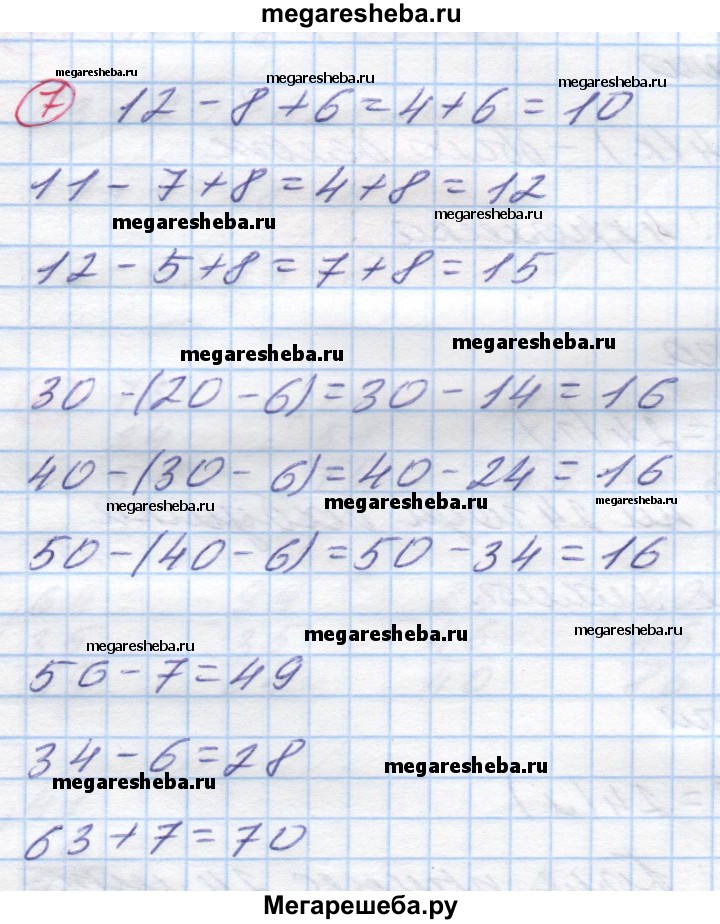 megaresheba.ru
megaresheba.ru
megaresheba.ru
megaresheba.ru
7 12 - 8 + 6 = 4 + 6 = 10
11 - 7 + 8 = 4 + 8 = 12
megaresheba.ru
megaresheba.ru
12 - 5 + 8 = 7 + 8 = 15
megaresheba.ru
megaresheba.ru
30 - (20 - 6) = 30 - 14 = 16
40 - (30 - 6) = 40 - 24 = 16
megaresheba.ru
megaresheba.ru
megaresheba.ru
50 - (40 - 6) = 50 - 34 = 16
megaresheba.ru
megaresheba.ru
megaresheba.ru
56 - 7 = 49
34 - 6 = 28
megaresheba.ru
megaresheba.ru
63 + 7 = 70
Мегарешеба.ру